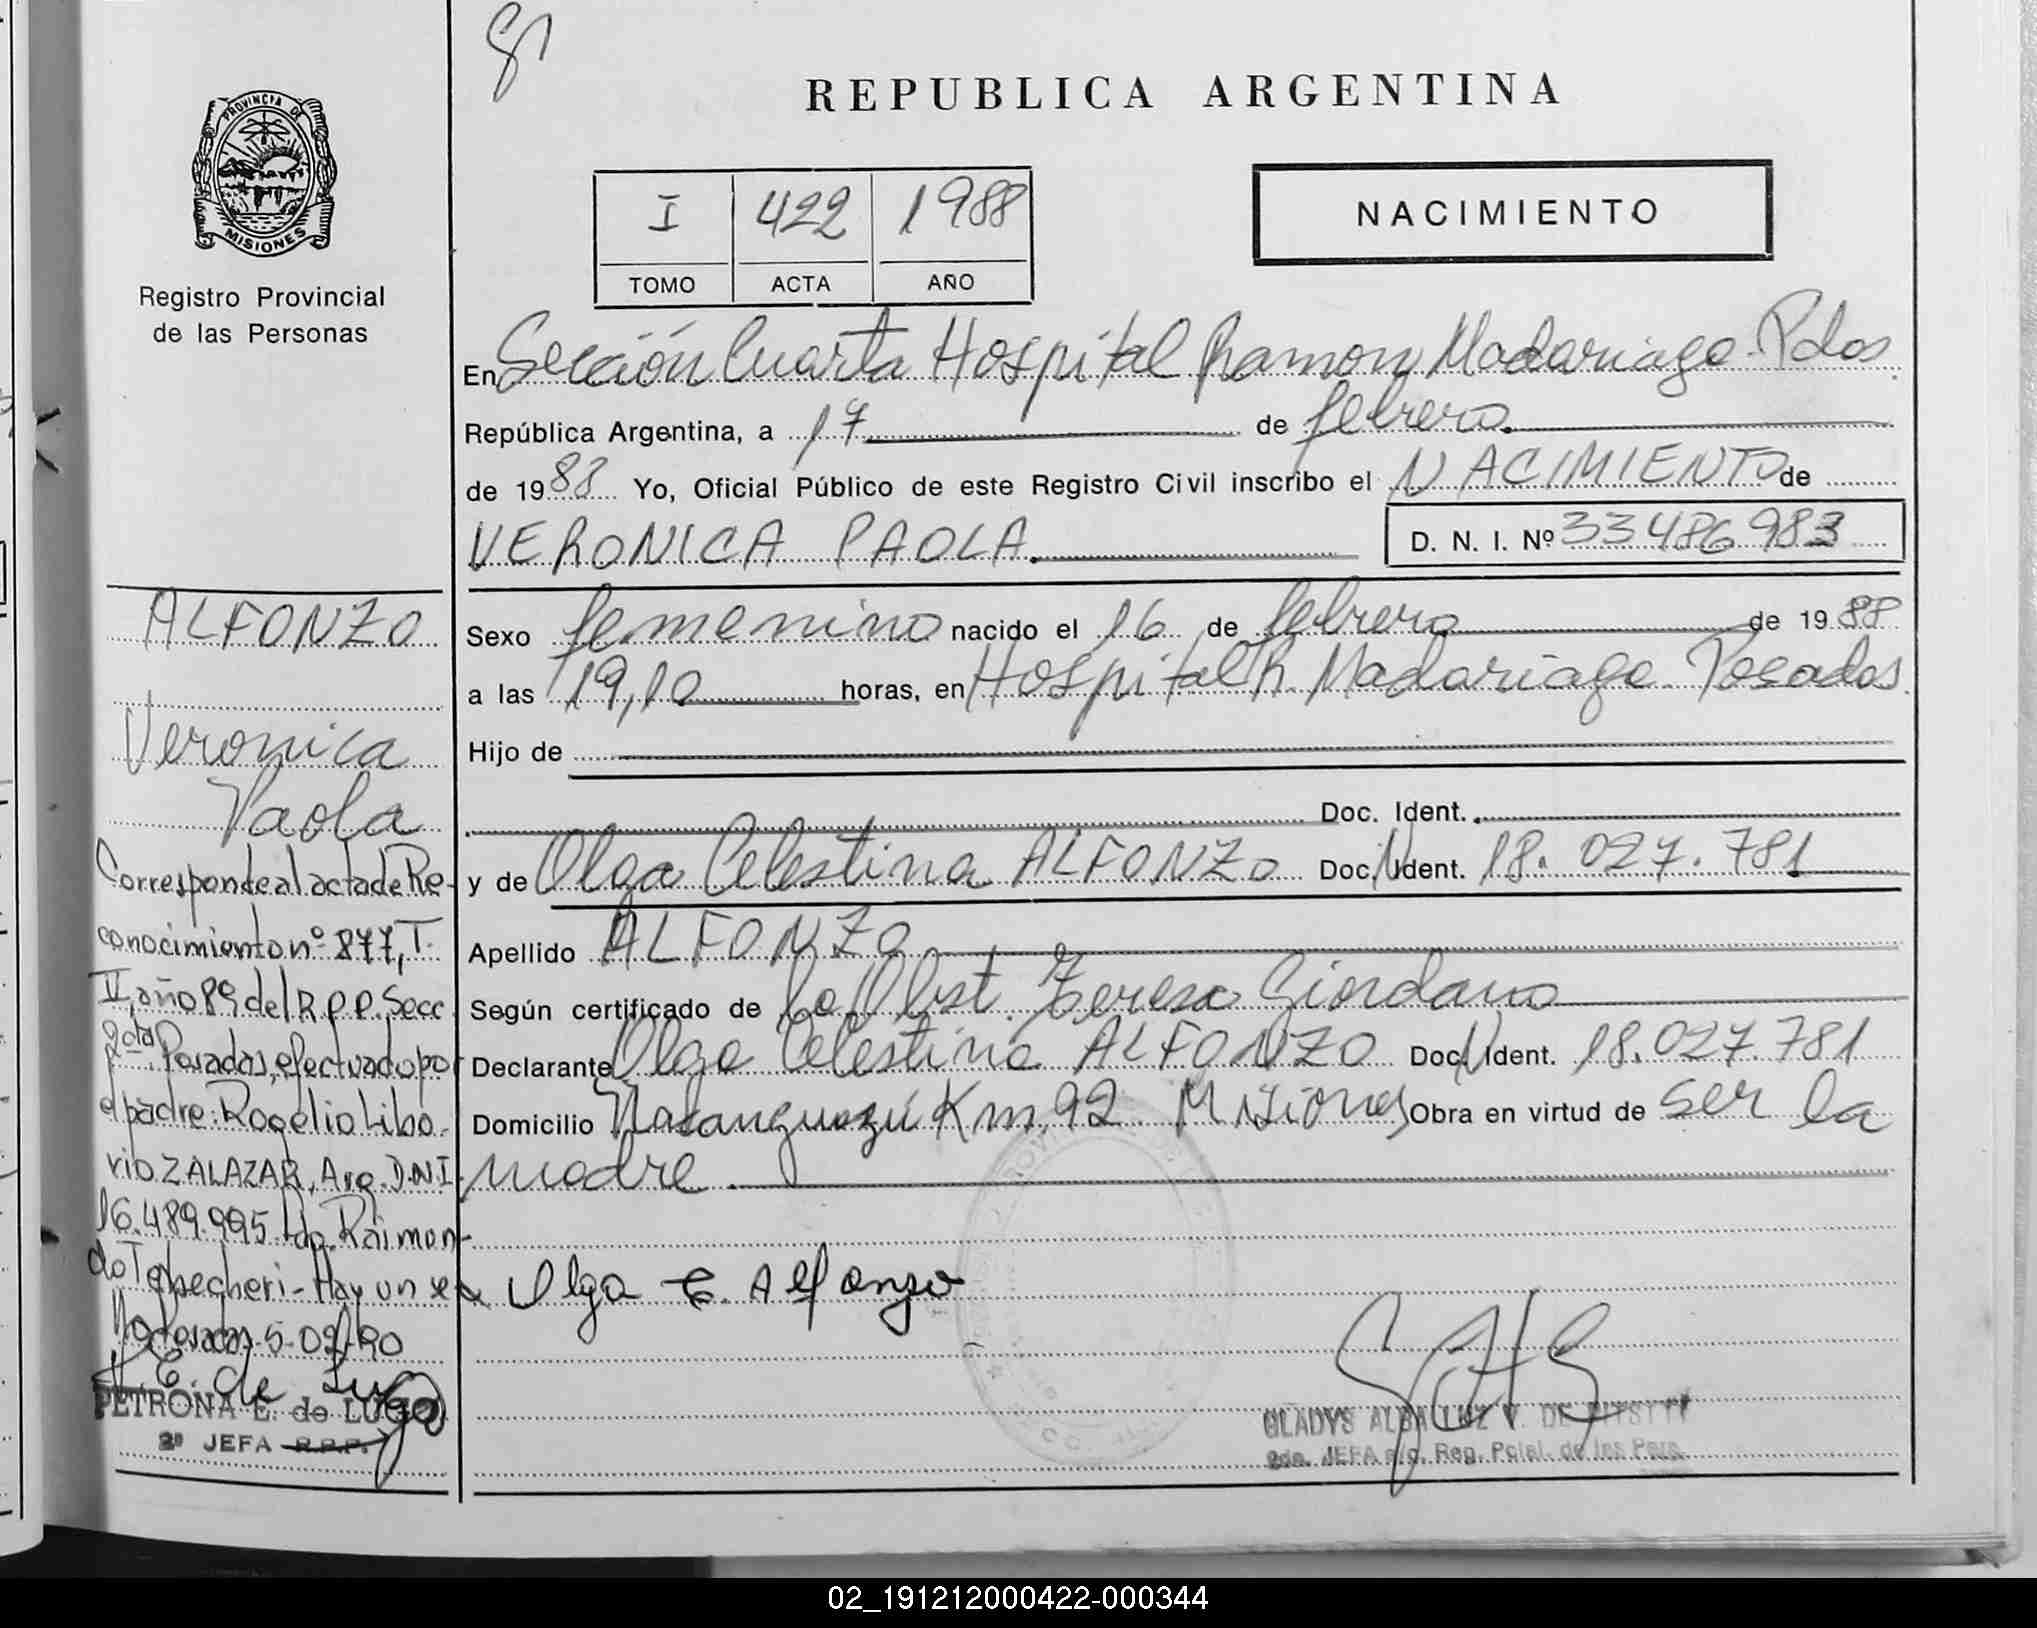 REPUBLICA ARGENTINA
PROVINCIA DE
MISIONES
Registro Provincial
de las Personas
I 422 1988
TOMO ACTA AÑO
NACIMIENTO
En Sección Cuarta Hospital Ramon Madariaga - Pdas
República Argentina, a 17 de febrero
de 1988 Yo, Oficial Público de este Registro Civil inscribo el NACIMIENTO de
VERONICA PAOLA. D. N. I. Nº 33486983
Sexo femenino nacido el 16 de febrero de 1988
a las 19,10 horas, en Hospital R. Madariaga - Posadas
Hijo de
Doc. Ident.
y de Olga Celestina ALFONZO Doc. Ident. 18.027.781
Apellido ALFONZO
Según certificado de la Obst. Teresa Giordano
Declarante Olga Celestina ALFONZO Doc. Ident. 18.027.781
Domicilio Km 92 - Misiones Obra en virtud de ser la
madre.
Olga C. Alfonzo
GLADYS ALBA LUZ V. DE
2da. JEFA a/c. Reg. Pcial. de las Pers.
ALFONZO
Veronica
Paola
Corresponde al acta de Re-
conocimiento nº 877, T.
II, año 89 del R.P.P. Secc
2da Posadas, efectuado por
el padre: Rogelio Libo-
rio ZALAZAR, Arg. D.N.I.
16.489.995 Raimon-
do - Hay un se
Posadas 5-02-90
PETRONA E. de LUGO
2ª JEFA R.P.P.
02_191212000422-000344